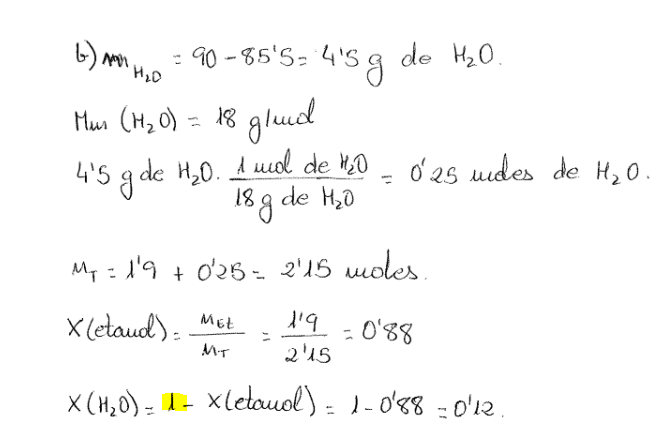 b) m H₂O = 90 - 85'5 = 4'5 g de H₂O.
Mm (H₂O) = 18 g/mol
4'5 g de H₂O. 1 mol de H₂O / 18 g de H₂O = 0'25 moles de H₂O.
nT = 1'9 + 0'25 = 2'15 moles.
X(etanol) = nEt / nT = 1'9 / 2'15 = 0'88
X(H₂O) = 1 - X(etanol) = 1 - 0'88 = 0'12.